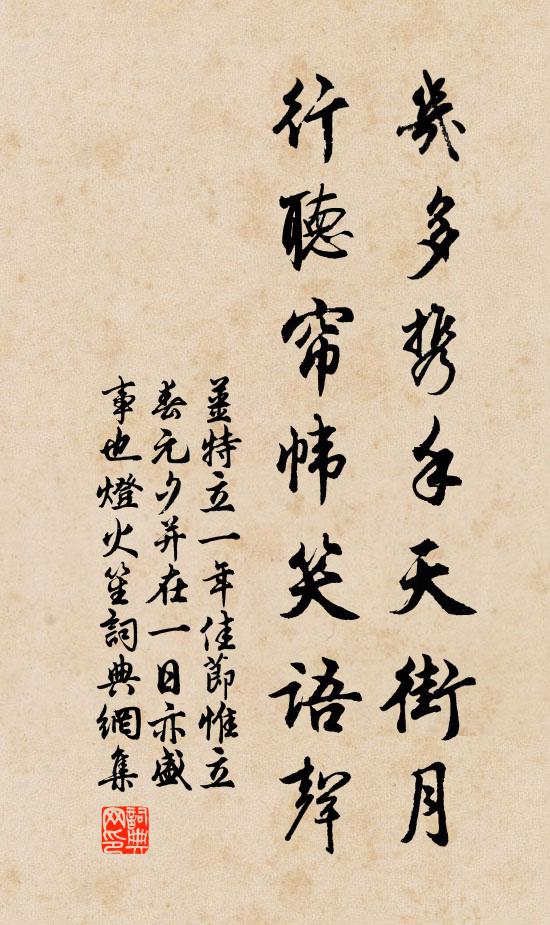 幾多携手天街月
行聽帘幃笑語聲
姜特立一年佳節惟立
春元夕并在一日亦盛
事也燈火笙詞典網集
詞典網印